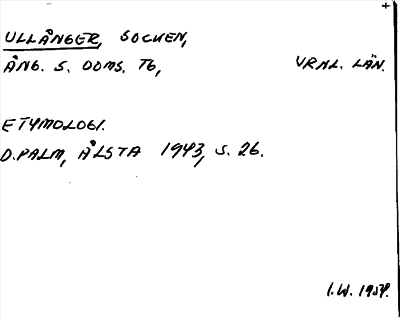 ULLÅNGER, SOCKEN,
ÅNG. S. DOMS. TG, VRNL. LÄN.
ETYMOLOGI.
D. PALM, ÅLSTA 1943, S. 26.
I.W. 1959.